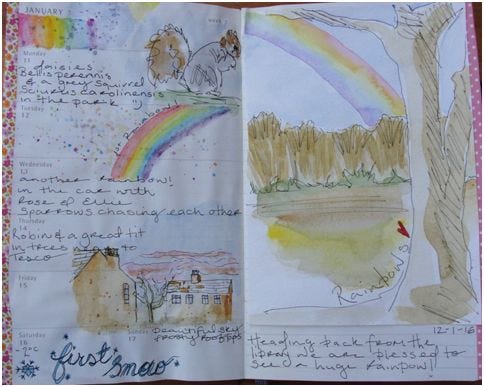 JANUARY
week 2
Monday
11
daisies
Bellis perennis
& a grey squirrel
Sciurus carolinensis
in the park "
Tuesday
12
our Rainbow!
Wednesday
13
another rainbow!
in the car with
Rose & Ellie
Sparrows chasing each other
Thursday
14
Robin & a great tit
in trees next to
Tesco
Friday
15
Saturday
16
-2°C
first snow
Sunday
17
beautiful sky
frosty rooftops
Rainbows
12-1-16
Heading back from the
library we are blessed to
see a huge rainbow!